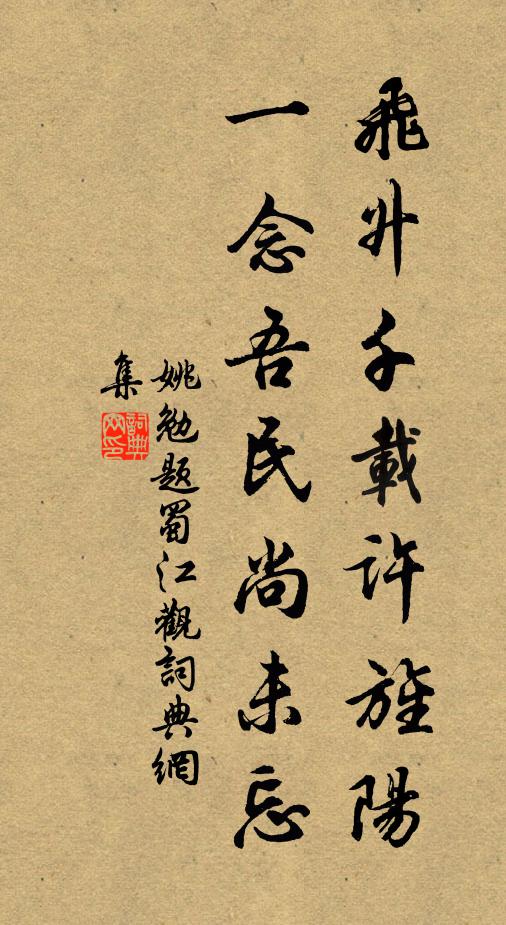 飛升千載許旌陽
一念吾民尚未忘
姚勉題蜀江觀詞典網
集
詞典
网印